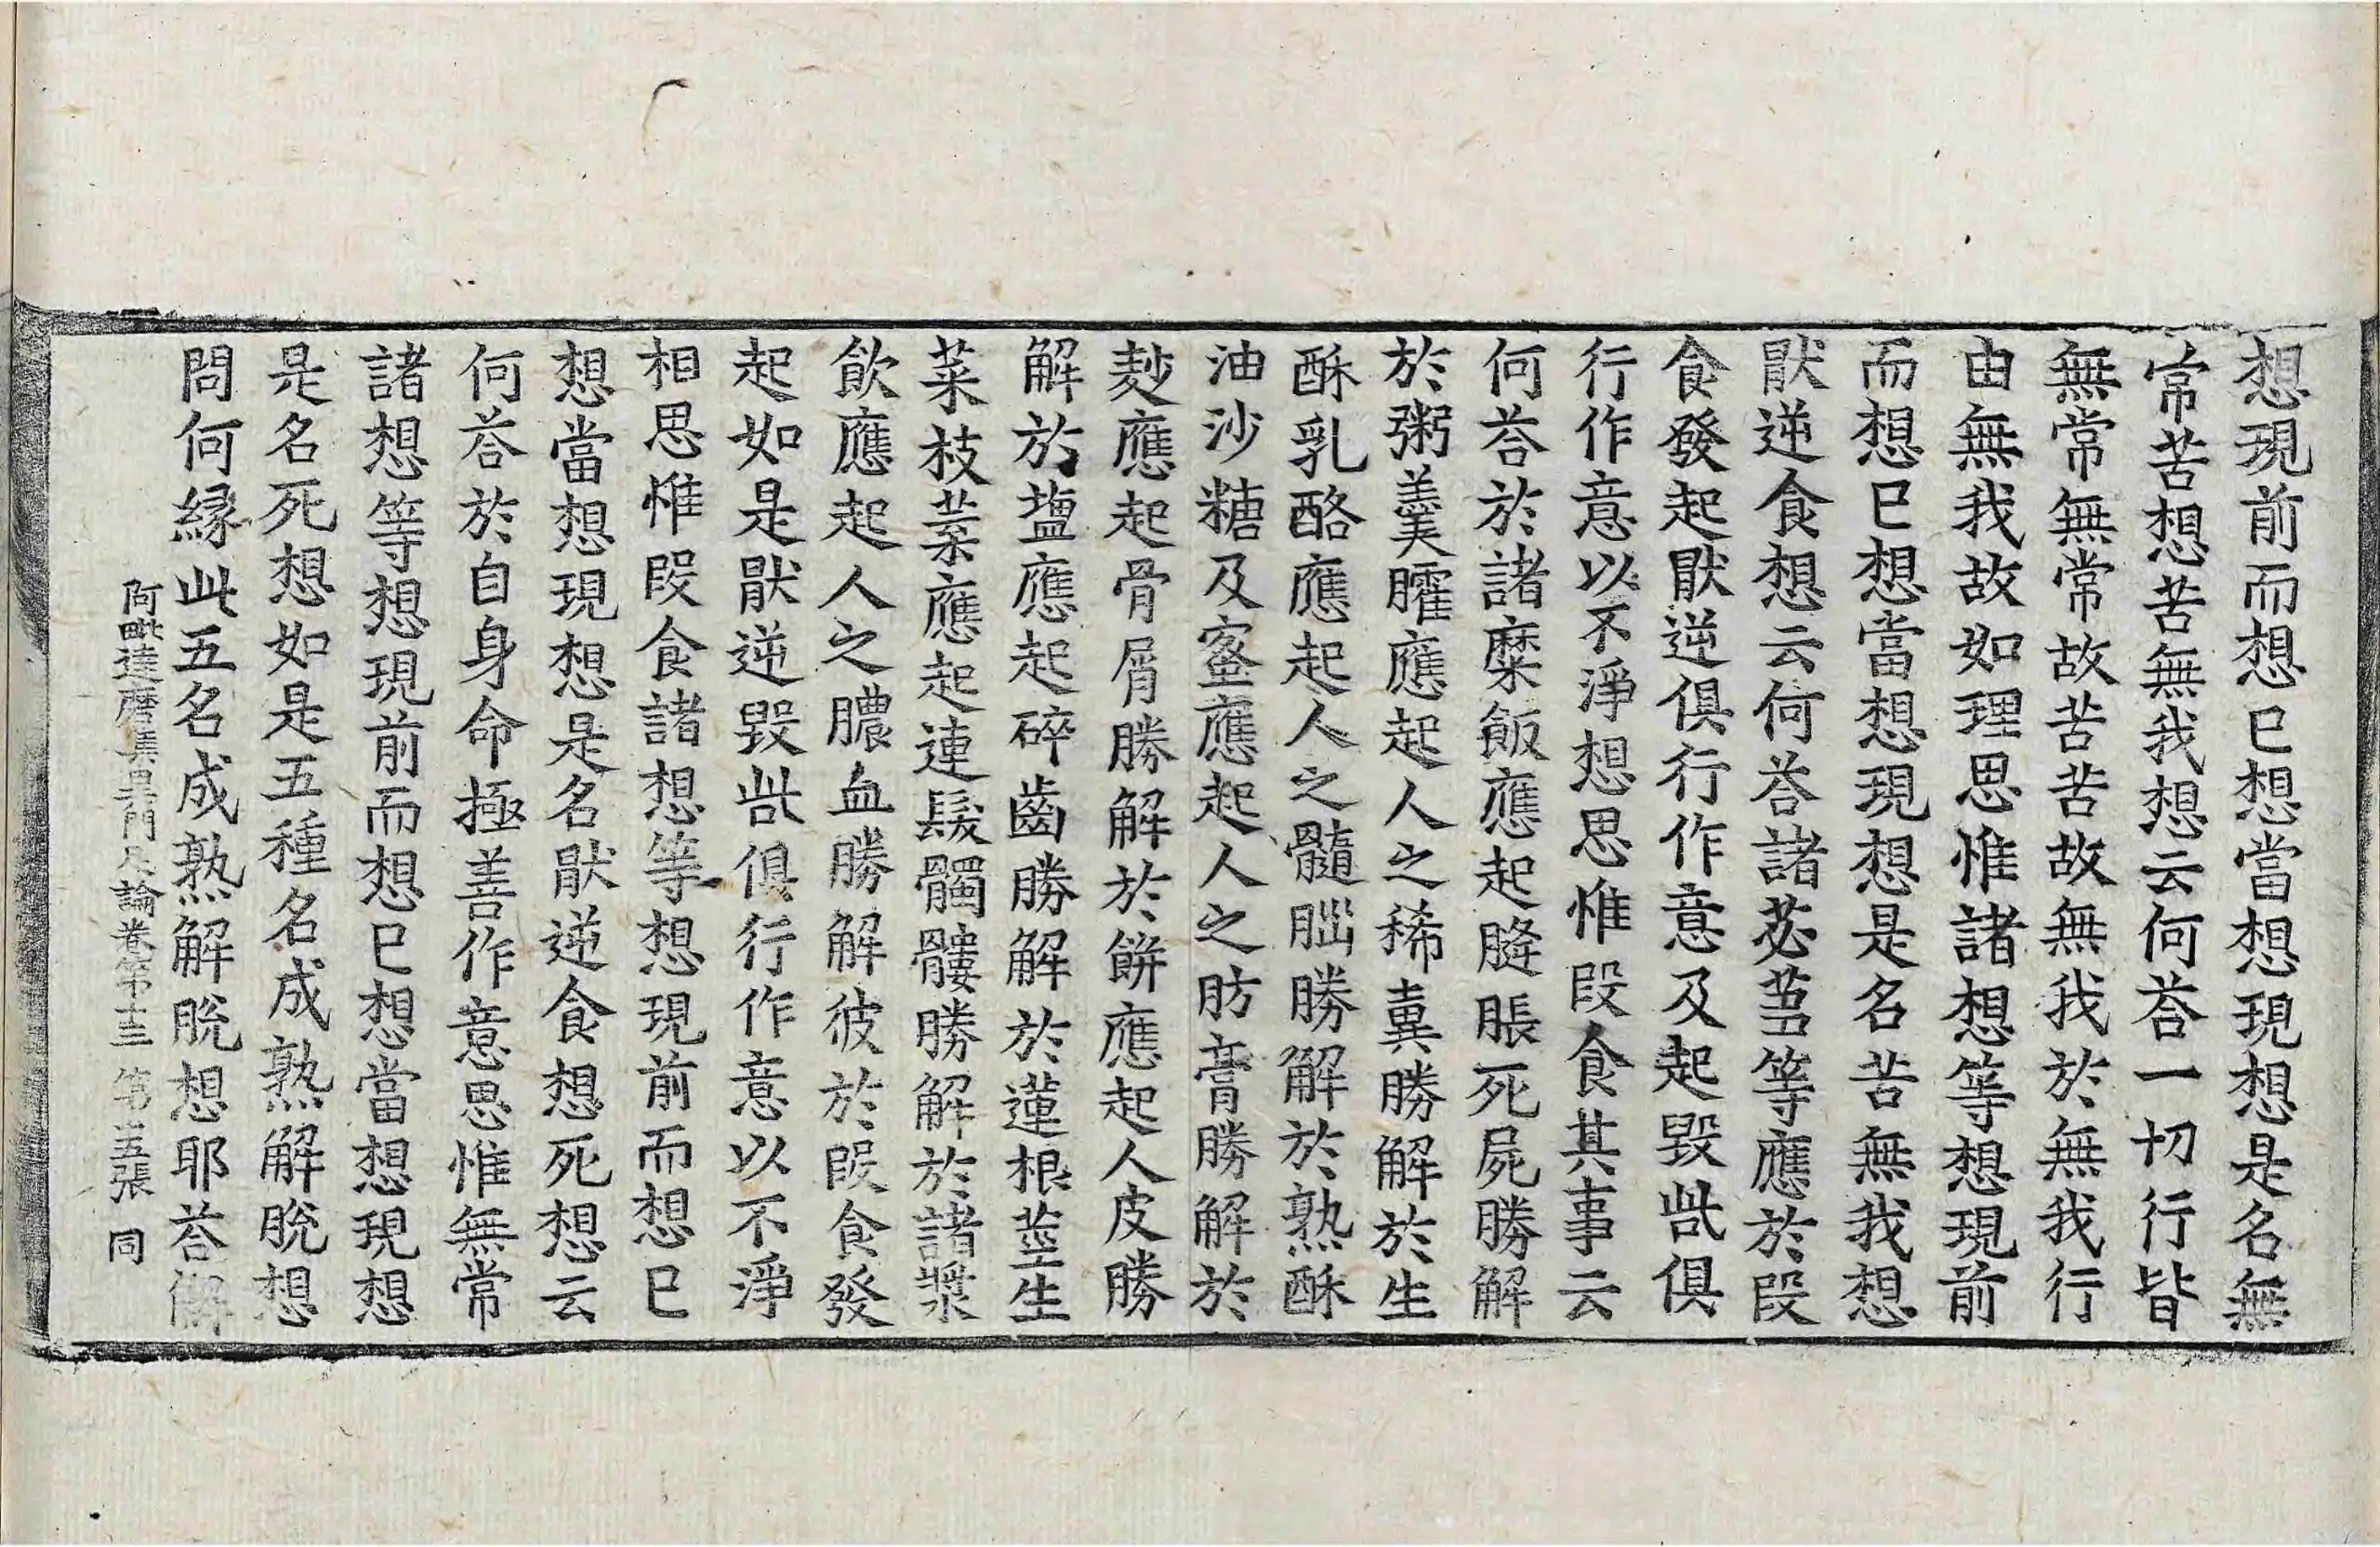 想現前而想已想當想現想是名無
常苦想苦無我想云何荅一切行皆
無常無常故苦苦故無我於無我行
由無我故如理思惟諸想等想現前
而想已想當想現想是名苦無我想
猒逆食想云何荅諸苾芻等應於段
食發起猒逆俱行作意及起毀呰俱
行作意以不淨想思惟段食其事云
何荅於諸糜飯應起膖脹死屍勝解
於粥羹臛應起人之稀糞勝解於生
酥乳酪應起人之髓𦛁勝解於熟酥
油沙糖及蜜應起人之肪膏勝解於
麨應起骨屑勝解於餅應起人皮勝
解於塩應起碎齒勝解於蓮根莖生
菜枝葉應起連髮髑髏勝解於諸漿
飲應起人之膿血勝解彼於段食發
起如是猒逆毀呰俱行作意以不淨
相思惟段食諸想等想現前而想已
想當想現想是名猒逆食想死想云
何荅於自身命極善作意思惟無常
諸想等想現前而想已想當想現想
是名死想如是五種名成熟解脫想
問何緣此五名成熟解脫想耶荅解
阿毗達磨集異門足論卷第十三 第五張 同